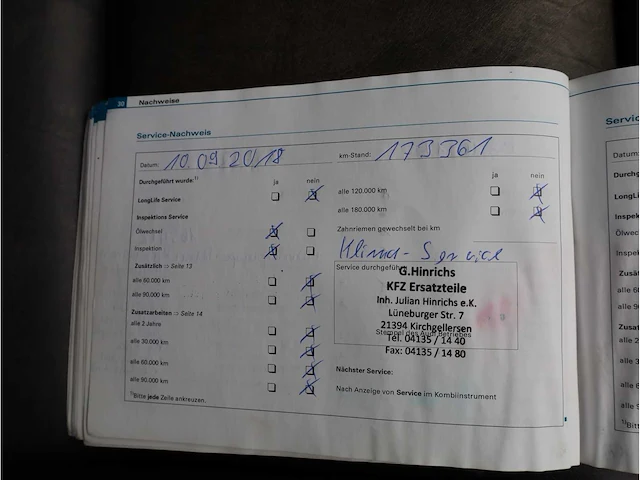 30 Nachweise
Service-Nachweis
Datum: 10 09 2018
km-Stand: 173361
Durchgeführt wurde:1) ja nein
LongLife Service
Inspektions Service
Ölwechsel
Inspektion
Zusätzlich ⇒ Seite 13
alle 60.000 km
alle 90.000 km
Zusatzarbeiten ⇒ Seite 14
alle 2 Jahre
alle 30.000 km
alle 60.000 km
alle 90.000 km
1)Bitte jede Zeile ankreuzen.
ja nein
alle 120.000 km
alle 180.000 km
Zahnriemen gewechselt bei km
Klima-Service
Service durchgeführt
G.Hinrichs
KFZ Ersatzteile
Inh. Julian Hinrichs e.K.
Lüneburger Str. 7
21394 Kirchgellersen
Stempel des Audi Betriebes
Tel. 04135 / 14 40
Fax: 04135 / 14 80
Nächster Service:
Nach Anzeige von Service im Kombiinstrument
Servic
Datum:
Durchg
LongLi
Inspek
Ölwec
Inspek
Zusätz
alle 60
alle 90
Zusat
alle 2
alle 3
alle 6
alle 9
1)Bitt